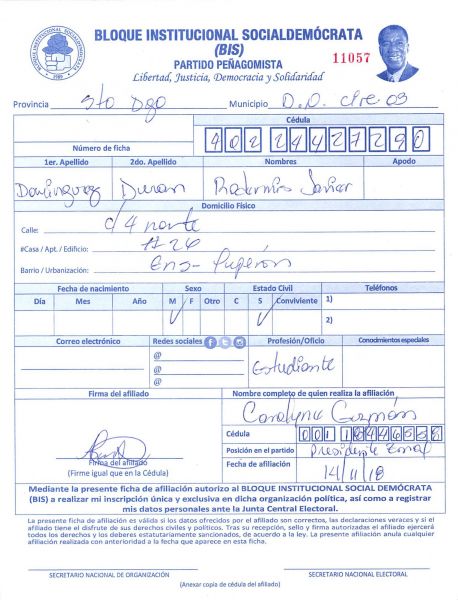 BLOQUE INSTITUCIONAL SOCIALDEMÓCRATA
(BIS)
PARTIDO PEÑAGOMISTA
11057
Libertad, Justicia, Democracia y Solidaridad
Provincia Sto Dgo Municipio D.O. 03
Cédula
Número de ficha 402 2442729 0
1er. Apellido 2do. Apellido Nombres Apodo
Dominguez Duran Javier
Domicilio Físico
Calle: c/4 norte
#Casa / Apt. / Edificio: #26
Barrio / Urbanización: Ens-
Fecha de nacimiento Sexo Estado Civil Teléfonos
Día Mes Año M F Otro C S Conviviente 1)
2)
Correo electrónico Redes sociales Profesión/Oficio Conocimientos especiales
@
@
@
Estudiante
Firma del afiliado Nombre completo de quien realiza la afiliación
Guzmán
Cédula 001
Posición en el partido Presidente Zonal
Firma del afiliado
Fecha de afiliación 14/11/18
(Firme igual que en la Cédula)
Mediante la presente ficha de afiliación autorizo al BLOQUE INSTITUCIONAL SOCIAL DEMÓCRATA
(BIS) a realizar mi inscripción única y exclusiva en dicha organización política, así como a registrar
mis datos personales ante la Junta Central Electoral.
La presente ficha de afiliación es válida si los datos ofrecidos por el afiliado son correctos, las declaraciones veraces y si el
afiliado tiene el disfrute de sus derechos civiles y políticos. Tras su recepción, sello y firma autorizadas el afiliado ejercerá
todos los derechos y los deberes estatutariamente sancionados, de acuerdo a la ley. La presente afiliación anula cualquier
afiliación realizada con anterioridad a la fecha que aparece en esta ficha.
SECRETARIO NACIONAL DE ORGANIZACIÓN SECRETARIO NACIONAL ELECTORAL
(Anexar copia de cédula del afiliado)